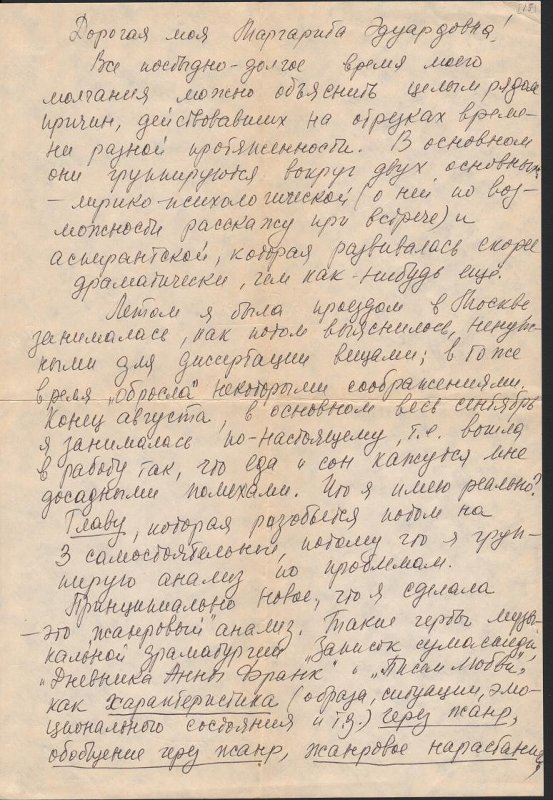 [15]
Дорогая моя Маргарита Эдуардовна!
Все постыдно-долгое время моего
молчания можно объяснить целым рядом
причин, действовавших на отрезках време-
ни разной протяженности. В основном
они группируются вокруг двух основных
– лирико-психологической (о ней по воз-
можности расскажу при встрече) и
аспирантской, которая развивалась скорее
драматически, чем как-нибудь еще.
Летом я была проездом в Москве
занималась, как потом выяснилось, ненуж-
ными для диссертации вещами; в то же
время „обросла" некоторыми соображениями.
Конец августа, в основном весь сентябрь
я занималась по-настоящему, т.е. вошла
в работу так, что еда и сон кажутся мне
досадными помехами. Что я имею реально?
Главу, которая разобьется потом на
3 самостоятельные, потому что я груп-
пирую анализ по проблемам.
Принципиально новое, что я сделала
– это „жанровый" анализ. Такие черты музы-
кальной драматургии „Записок сумасшед.",
„Дневника Анны Франк" и „Писем любви",
как характеристика (образа, ситуации, эмо-
ционального состояния и т.д.) через жанр,
обобщение через жанр, жанровое нарастание,